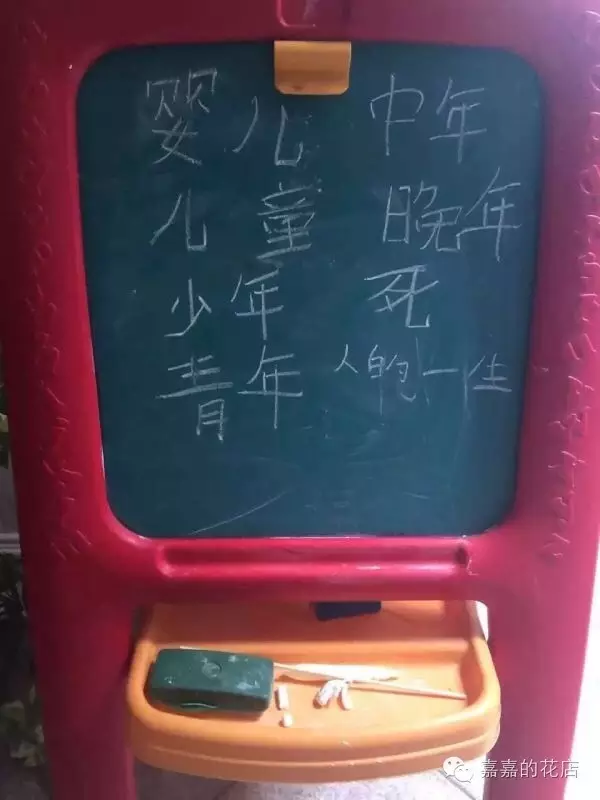 婴儿
儿童
少年
青年
中年
晚年
死
人的一生
嘉嘉的花店